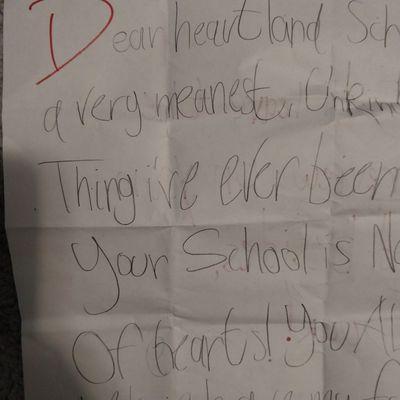 Dear heartland Sch
a very meanest, Unkin
Thing i've ever been
Your School is No
Of hearts! You AL